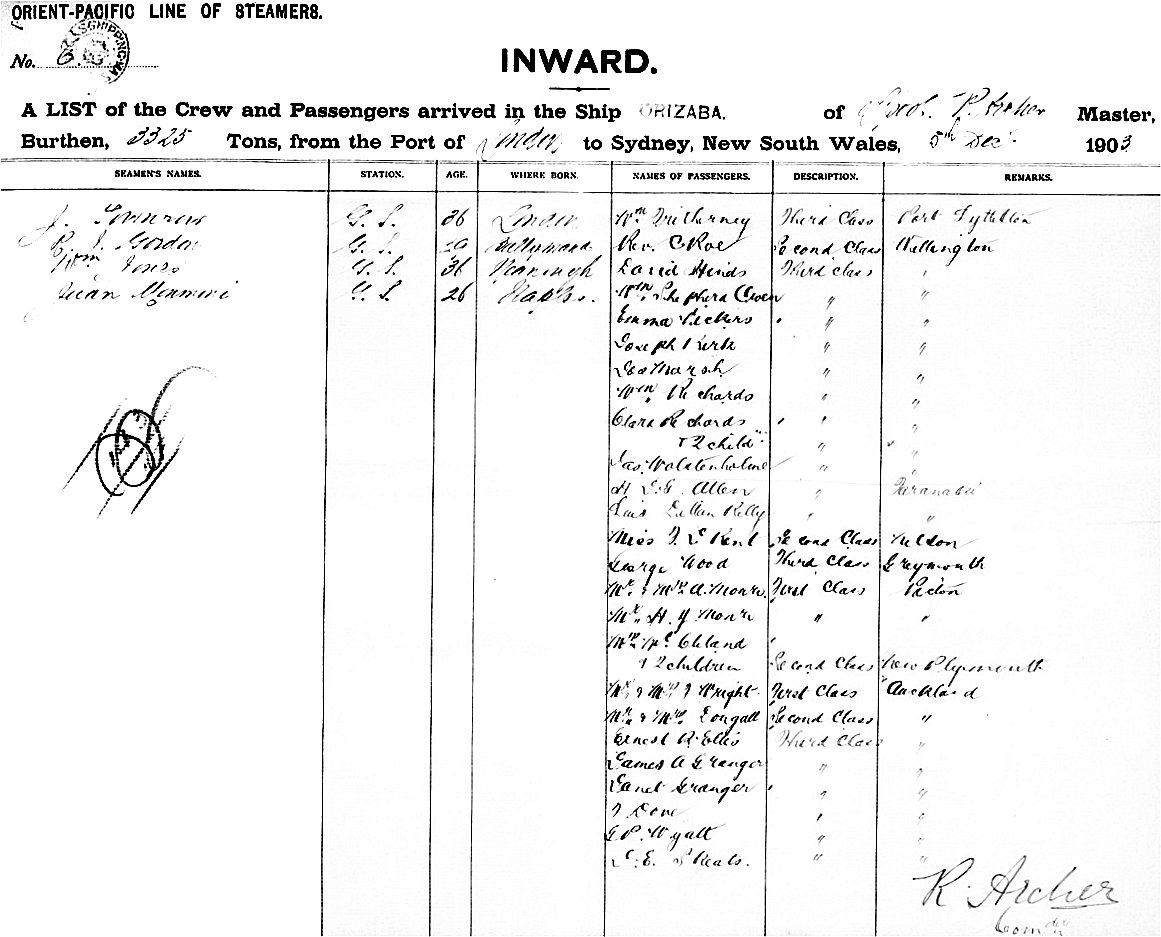 ORIENT-PACIFIC LINE OF STEAMERS.
No.
INWARD.
A LIST of the Crew and Passengers arrived in the Ship ORIZABA, of R. Archer Master,
Burthen, 3325 Tons, from the Port of London to Sydney, New South Wales, 5th Decr. 1903
SEAMEN'S NAMES. STATION. AGE. WHERE BORN. NAMES OF PASSENGERS. DESCRIPTION. REMARKS.
J. G. S. 36 London Wm Third Class Port Lyttelton
R. J. Gordon G. S. Rev. C Roe Second Class Wellington
Wm Jones G. S. 36 David Hinds Third Class "
Juan G. S. 26 Naples. Wm Shepherd Owen " "
Emma Vickers " "
Joseph Kirk " "
Marsh " "
Wm Richards " "
Clara Richards " "
& 2 child " "
Jas. Wolstenholme " "
H Allen " Taranaki
Kelly " "
Miss Kent Second Class Nelson
George Wood Third Class Greymouth
Mr. & Mrs A. Monro. First Class Picton
Mr. H. J. Monro " "
Mrs. Mc Cleland
& 2 children Second Class New Plymouth
Mr & Mrs J Wright First Class Auckland
Mr. & Mrs. Dougall Second Class "
Ernest R. Ellis Third Class "
James A Granger " "
Janet Granger " "
J Dove " "
G P. Wyatt " "
Skeats. " "
R. Archer
Comdr